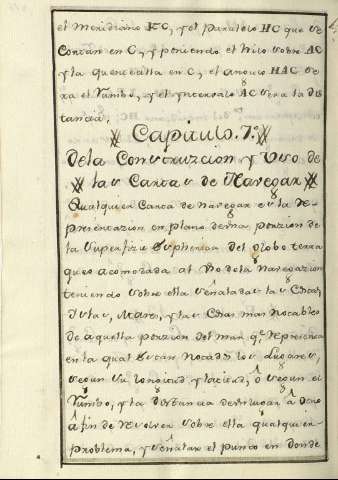 el Meridiano KC, y el Paralelo HC que se
Cortan en C, y poniendo el hilo sobre AC
y la quenta en C, el angulo HAC se
ra el Rumbo, y el yntervalo AC sera la dis
tancia.
Capitulo. 7º
De la Construzcion y Uso de
las Cartas de Navegar
Qualquier Carta de navegar es la re-
presentazion en plano de una porzion de
la superfizie Spherica del Globo terra
queo acomodada al Uso de la Navegazion
teniendo sobre ella señaladas las Costas,
Yslas, Mares, y las Cosas mas notables
de aquella porzion del mar q.e representa
en la qual estan notados los Lugares,
segun su longitud, y latitud, ô segun el
Rumbo, y la distancia de un lugar â otro
â fin de resolver sobre ella qualquier
problema, y señalar el punto en donde